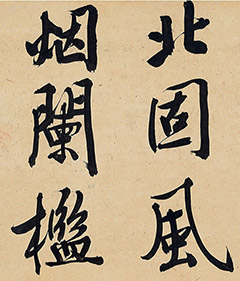 北固風
烟闌檻